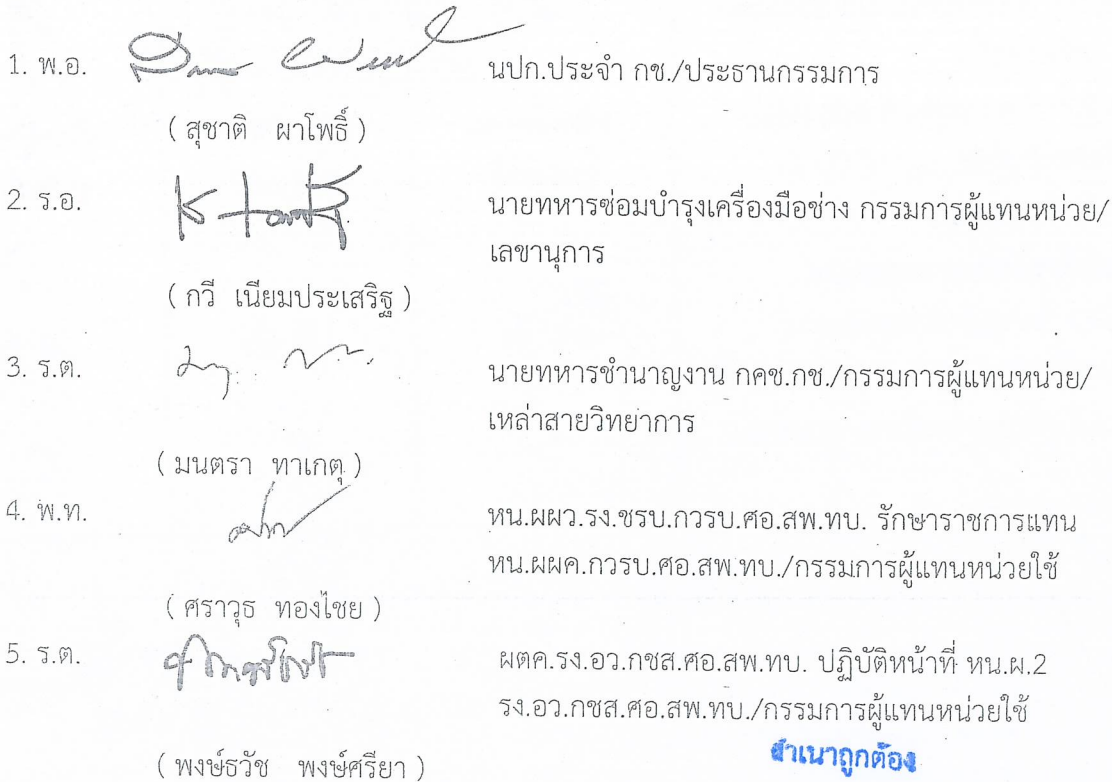 1. พ.อ. นปก.ประจำ กช./ประธานกรรมการ
( สุชาติ ผาโพธิ์ )
2. ร.อ. นายทหารซ่อมบำรุงเครื่องมือช่าง กรรมการผู้แทนหน่วย/
เลขานุการ
( กวี เนียมประเสริฐ )
3. ร.ต. นายทหารชำนาญงาน กคช.กช./กรรมการผู้แทนหน่วย/
เหล่าสายวิทยาการ
( มนตรา ทาเกตุ )
4. พ.ท. หน.ผผว.รง.ซรบ.กวรบ.ศอ.สพ.ทบ. รักษาราชการแทน
หน.ผผค.กวรบ.ศอ.สพ.ทบ./กรรมการผู้แทนหน่วยใช้
( ศราวุธ ทองไชย )
5. ร.ต. ผตค.รง.อว.กซส.ศอ.สพ.ทบ. ปฏิบัติหน้าที่ หน.ผ.2
รง.อว.กซส.ศอ.สพ.ทบ./กรรมการผู้แทนหน่วยใช้
สำเนาถูกต้อง
( พงษ์ธวัช พงษ์ศรียา )